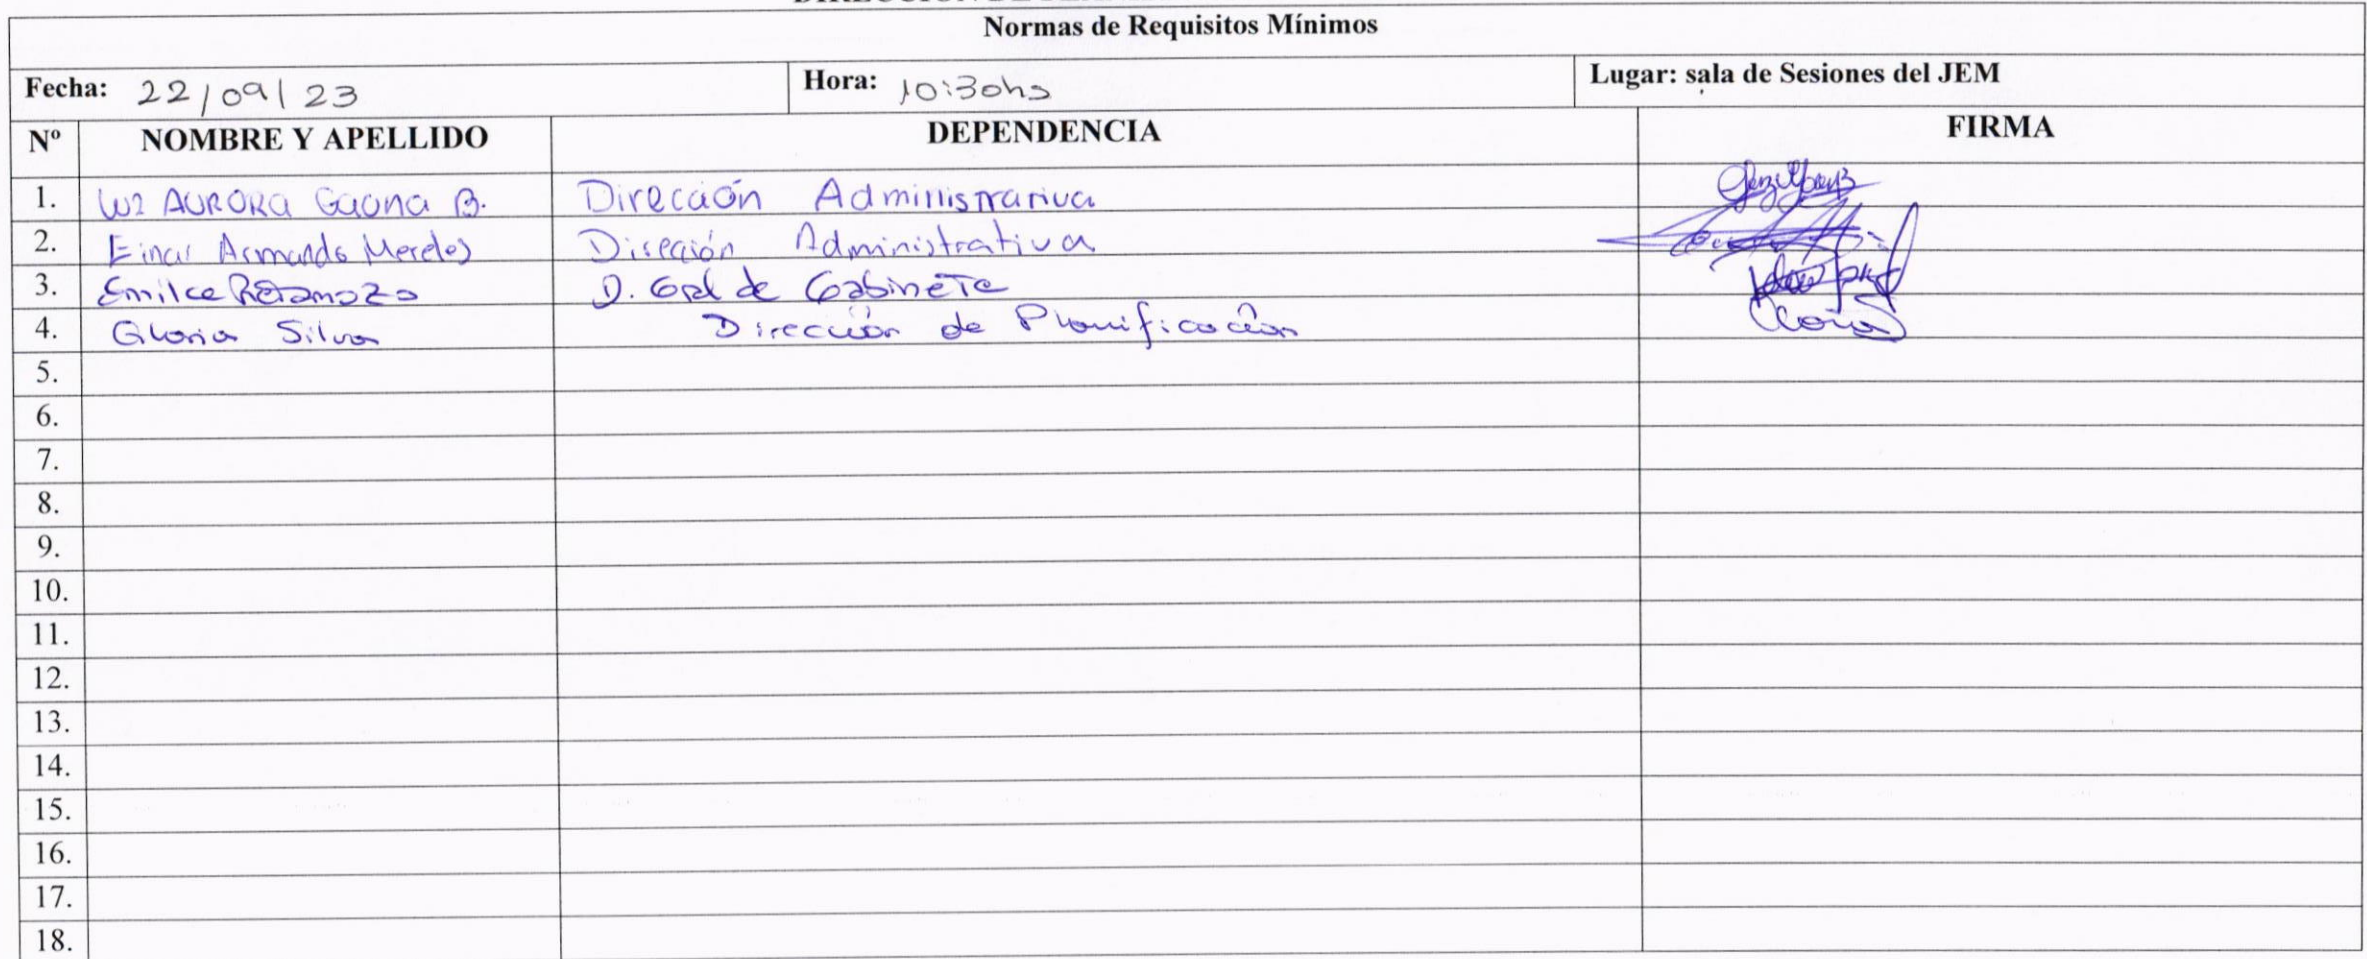 Normas de Requisitos Mínimos
Fecha: 22/09/23 Hora: 10:30hs Lugar: sala de Sesiones del JEM
Nº NOMBRE Y APELLIDO DEPENDENCIA FIRMA
1. AURORA Gaona B. Dirección Administrativa
2. Armando Mereles Dirección Administrativa
3. Emilce Retamozo D. Gral de Gabinete
4. Gloria Silva Dirección de Planificación
5.
6.
7.
8.
9.
10.
11.
12.
13.
14.
15.
16.
17.
18.